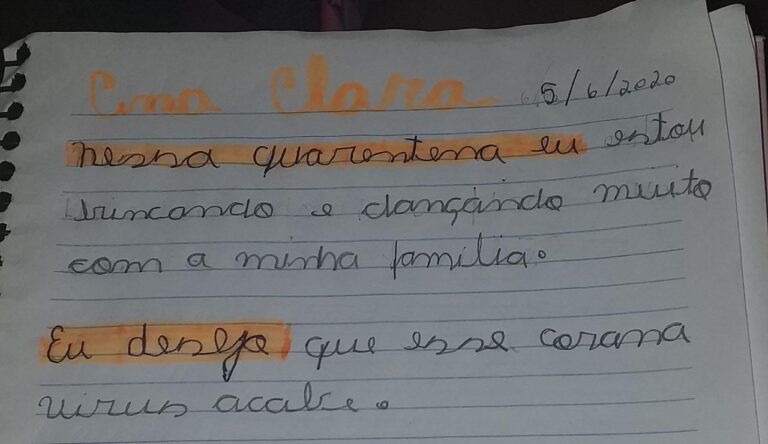 Ana Clara 5/6/2020
nessa quarentena eu estou
brincando e dançando muito
com a minha família.
Eu desejo que esse corona
virus acabe.